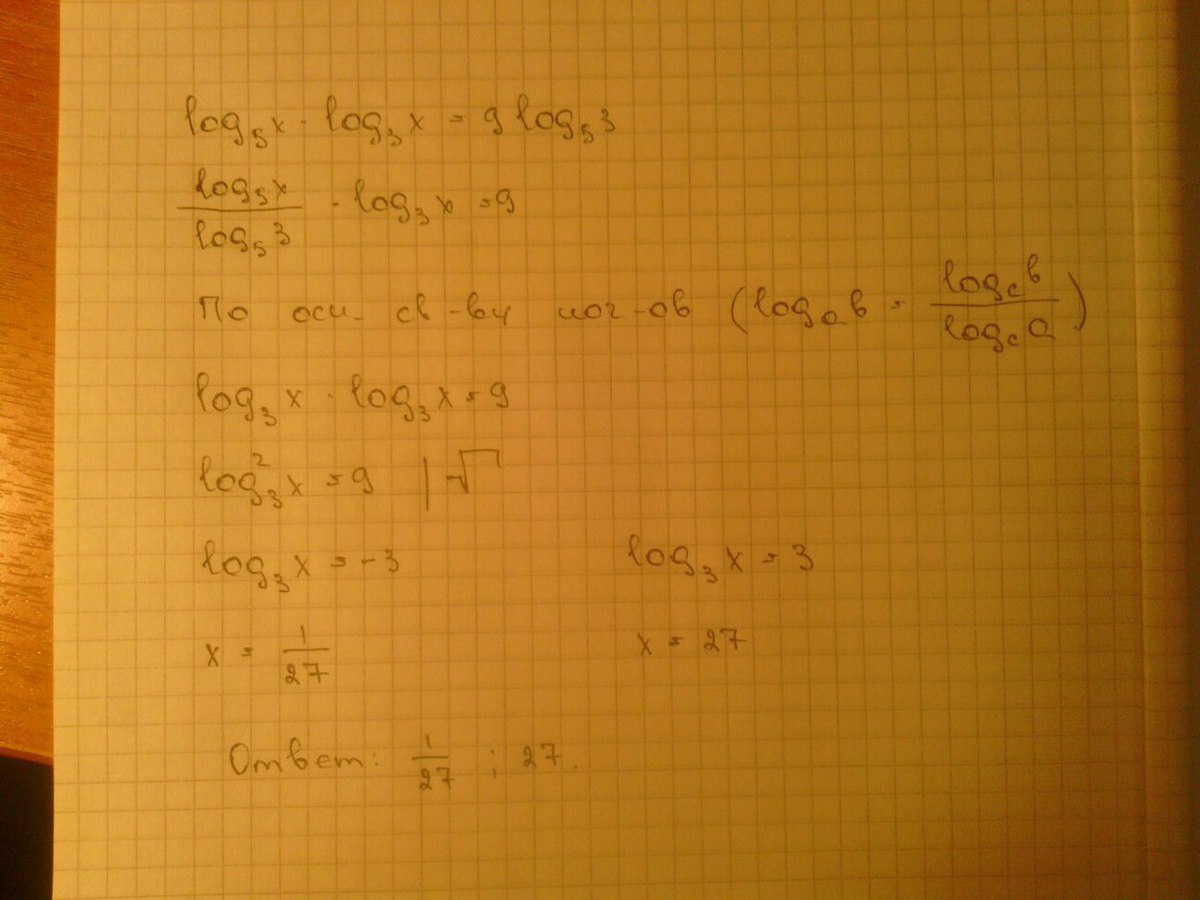 log₅x · log₃x = 9 log₅3
log₅x / log₅3 · log₃x = 9
По осн. св-ву лог-ов (logₐb = log_c b / log_c a)
log₃x · log₃x = 9
log₃²x = 9 | √
log₃x = -3 log₃x = 3
x = 1/27 x = 27
Ответ: 1/27 ; 27.